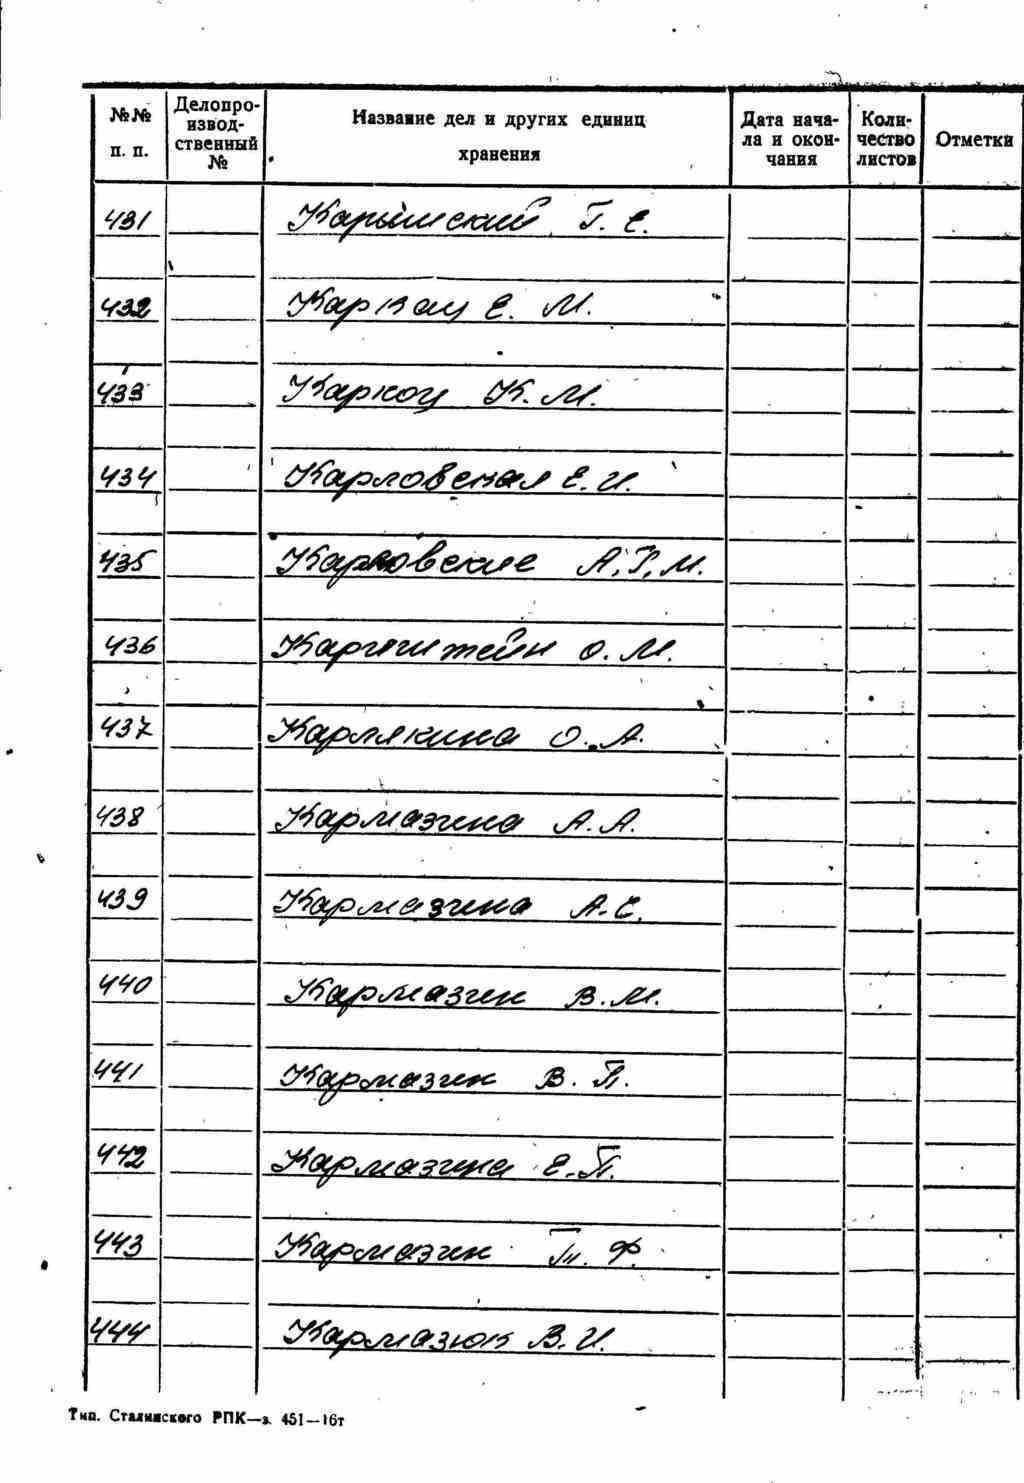 №№ п. п. Делопроизводственный № Название дел и других единиц хранения Дата начала и окончания Количество листов Отметки
431 Карышский Г. Е.
432 Каркац Е. М.
433 Каркоц К. М.
434 Карловская Е. И.
435 Карловские А, Г, М.
436 Карлштейн О. М.
437 Карлякина О. А.
438 Кармазина А. А.
439 Кармазина А. С.
440 Кармазин В. М.
441 Кармазин В. П.
442 Кармазина Е. П.
443 Кармазин Т. Ф.
444 Кармазюк В. И.
Тип. Сталинского РПК—з. 451—16т